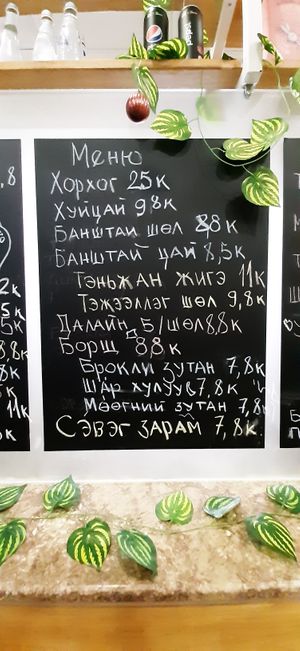 Меню
Хорхог 25к
Хуйцай 9,8к
Банштай шөл 8,8к
Банштай цай 8,5к
Тэньжан жигэ 11к
Тэжээллэг шөл 9,8к
Далайн Б/шөл 8,8к
Борщ 8,8к
Брокли зутан 7,8к
Шар хулуу 7,8к
Мөөгний зутан 7,8к
Сэвэг зарам 7,8к
pepsi
.8
2к
5к
5к
8,8к
8к
к
11к
5к